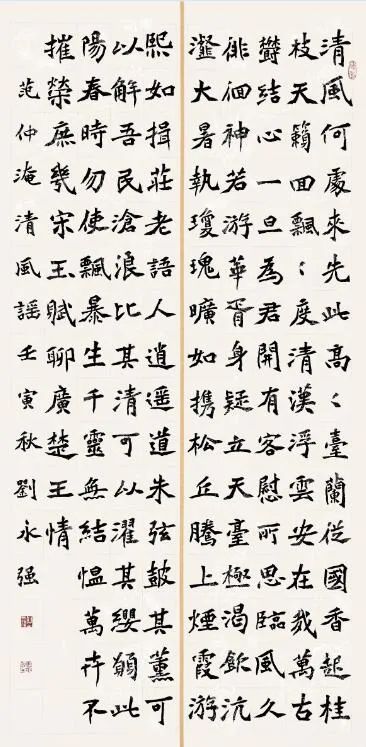 清風何處來先此高〻臺蘭從國香起桂
枝天籟回飄〻度清漢浮雲安在哉萬古
欝結心一旦為君開有客慰所思臨風久
徘徊神若游華胥身疑立天臺極渴飲沆
瀣大暑執瓊瑰曠如携松丘騰上煙霞游
熙如揖莊老語人逍遥道朱弦鼓其薰可
以解吾民滄浪比其清可以濯其纓願此
陽春時勿使飄暴生千靈無結愠萬卉不
摧榮庶幾宋玉賦聊廣楚王情
范仲淹清風謡壬寅秋劉永强